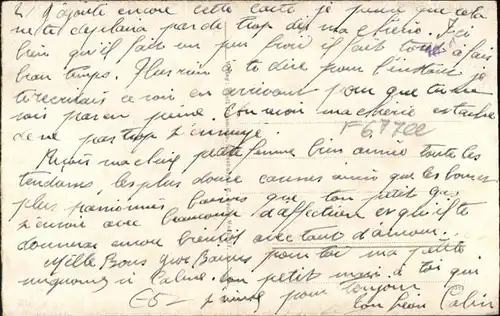 2/ J'ajoute encore cette carte je pense que cela
ne te déplaira pas de trop dis ma chérie. Ici
bien qu'il fait un peu froid il fait tout à fait
bon temps. Plus rien à te dire pour l'instant je
t'écrirais ce soir en arrivant pour que tu ne
sois pas en peine. Et toi ma chérie
de ne pas trop s'ennuyer.
F67722
Reçois ma petite femme bien aimée toutes les
tendresses, les plus douces caresses ainsi que les bonnes
plus passionnés baisers que ton petit gas
t'envoie avec beaucoup d'affection et qu'il te
donneras encore bientôt avec tant d'amour.
Mille Bons gros Baisers pour toi ma petite
mignonne à Ton petit mari à toi qui
t'aime pour toujours
ton Léon